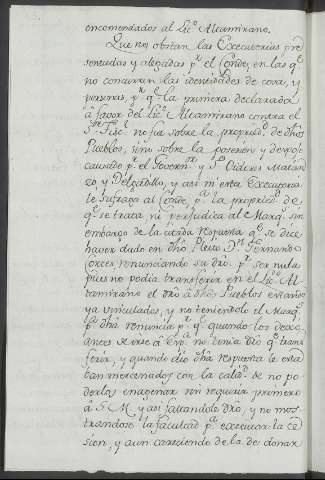 encomendados al Lic.º Altamirano.
Que no obstan las Executorias pre
sentadas y alegadas p.r el Conde, en las q.e
no concurren las identidades de cosa, y
personas, p.r q.e la primera declarada
â favor del Lic.º Altamirano contra el
S.or Fisc.l no fue sobre la propried.d de dhos
Pueblos, sino sobre la posesion y despojo
causado p.r el Governa.or y S.res Oidores Matien
zo, y Delgadillo, y asi ni esta Executoria
le sufraga al Conde p.a la propried.d de
q.e se trata ni perjudica al Marq.s sin
embargo de la respuesta q.e se dice
haver dado en dho Pleito D.n Fernando
Cortes, renunciando su dro. p.r ser nula
pues no podia transferir en el Lic.º Al
tamirano el dro â dhos Pueblos estando
ya vinculados, y no teniendolo el Marq.s
p.a dha renuncia p.r q.e quando los
no tenia dro q.e trans
ferir, y quando dio dha respuesta le esta
ban mercenados con la calid.d de no po
derlos enagenar sin requirir primero
â S. M. y asi faltandole dro, y no mos
trandose la facultad p.a executar la ce
sion, y aun careciendo de la de donar